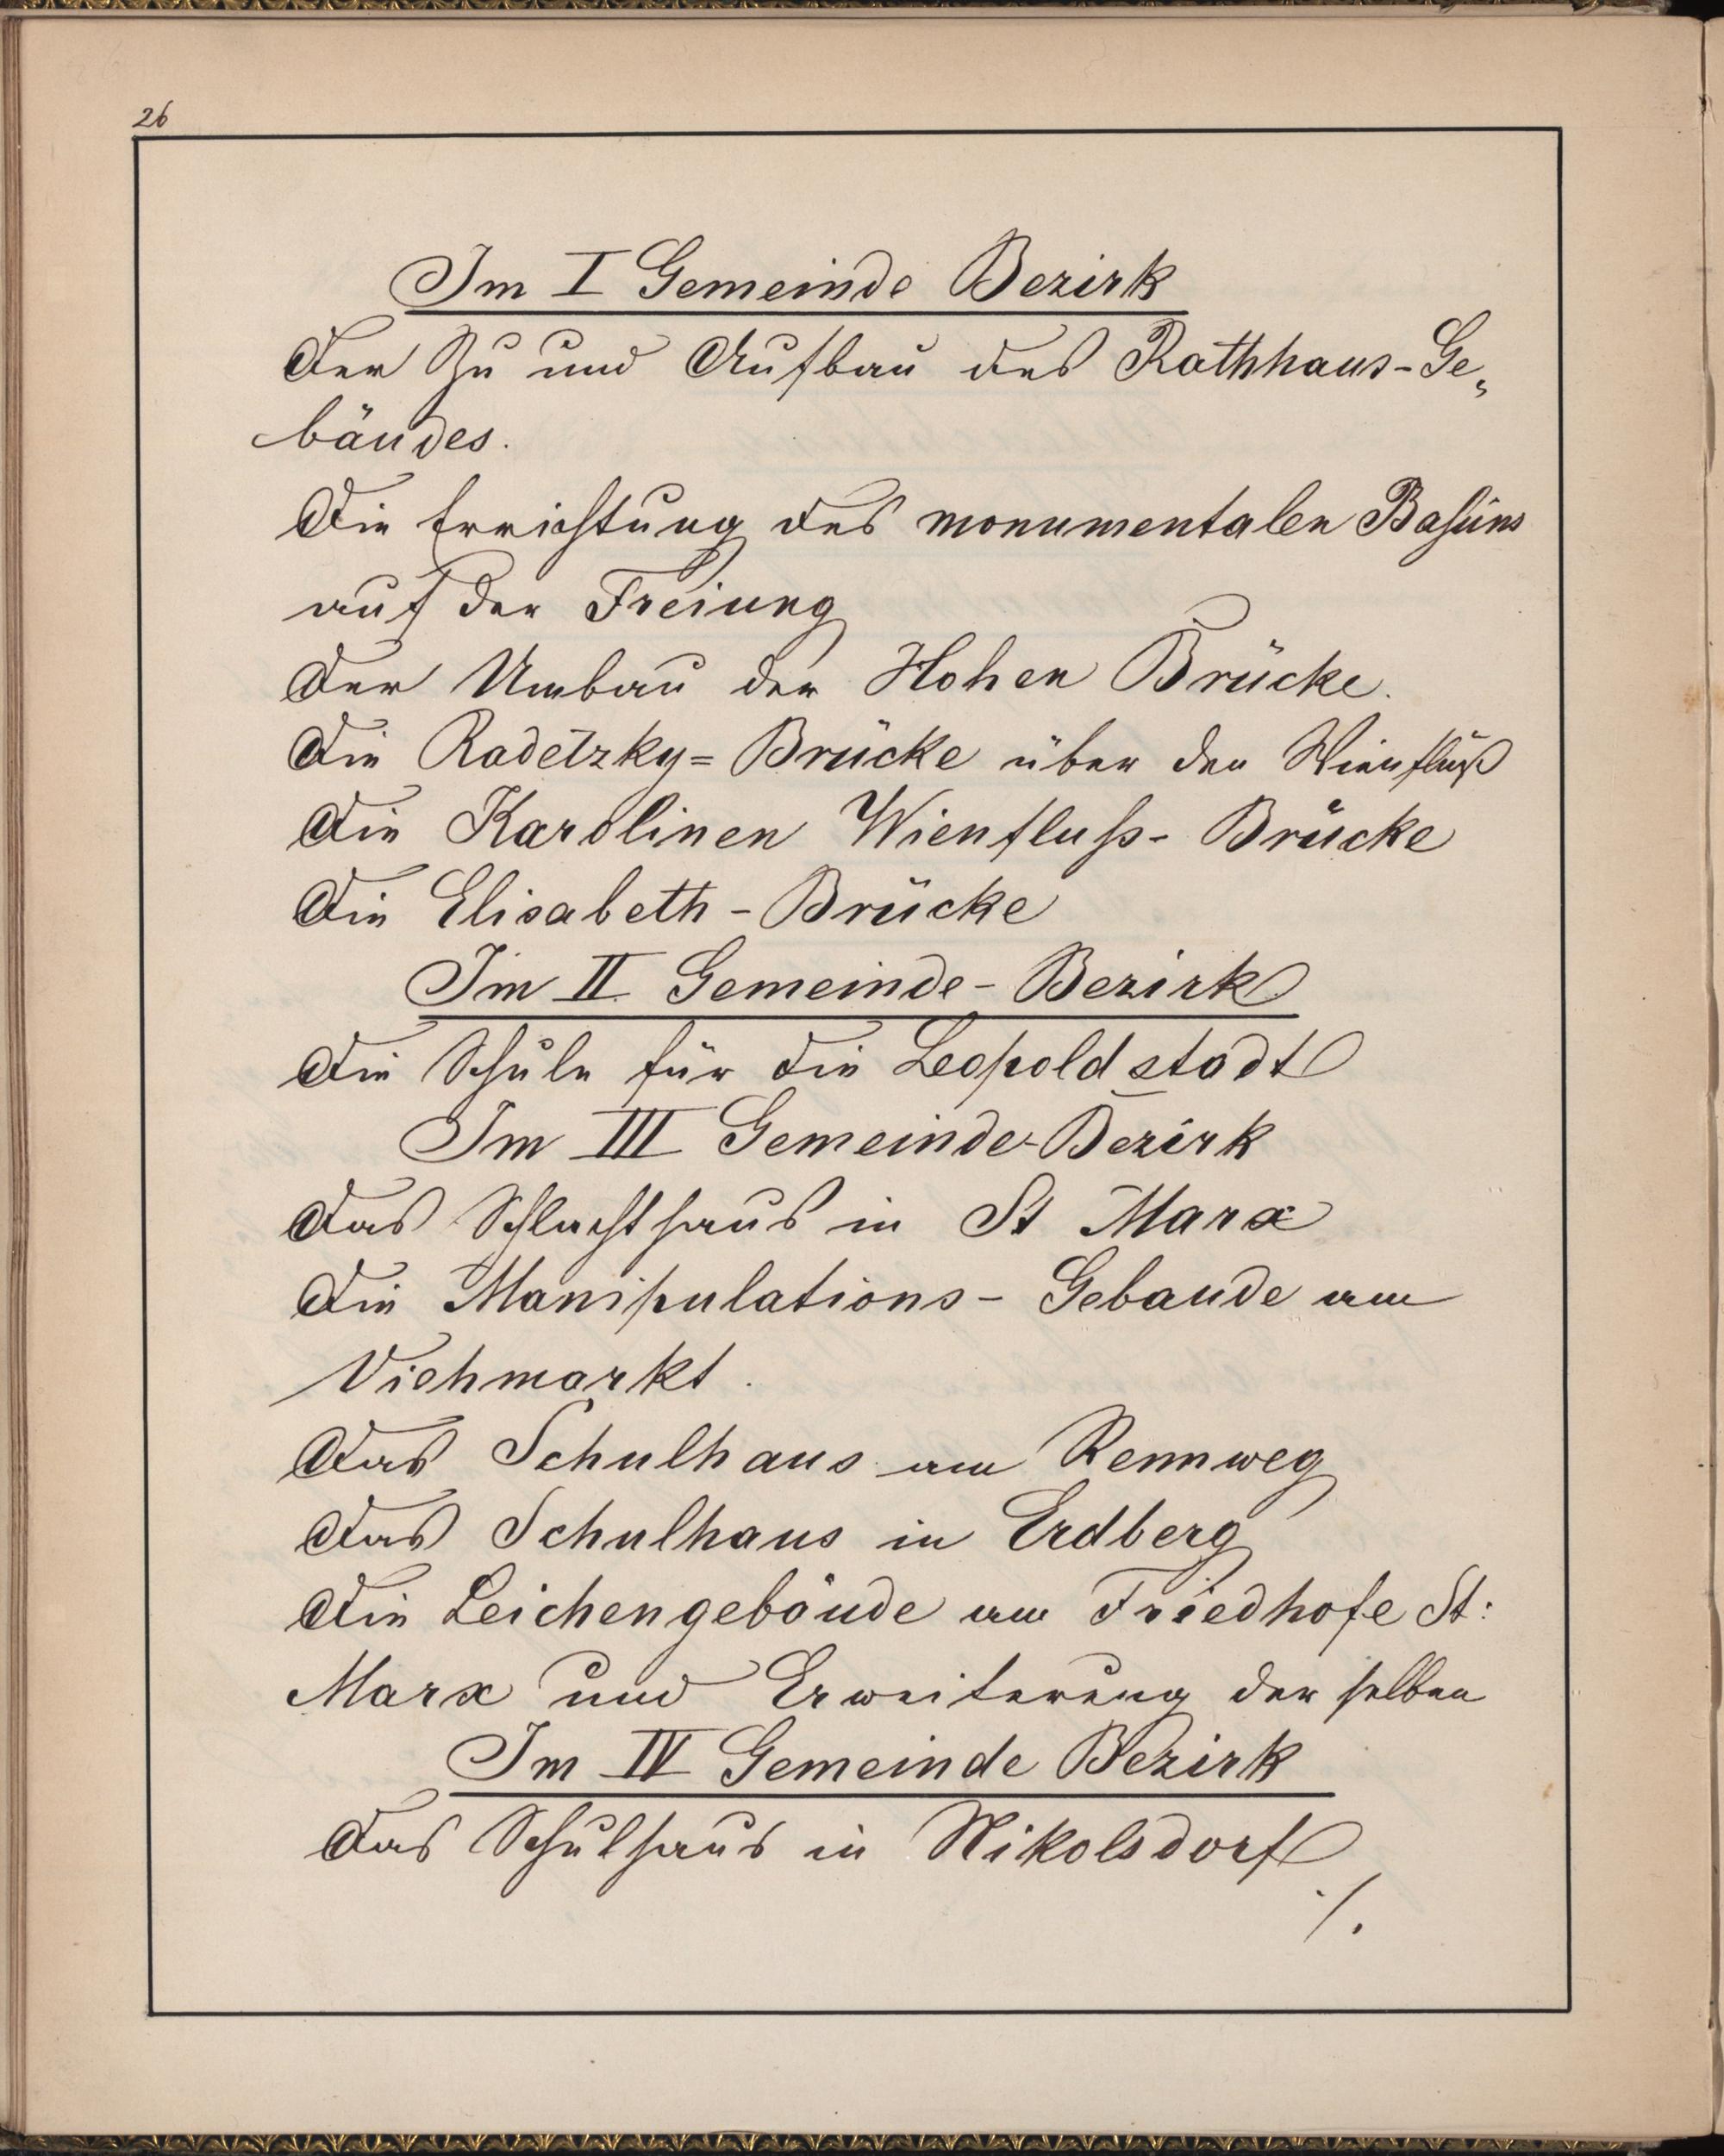 26
Im I Gemeinde Bezirk
Der Zu und Aufbau des Rathhaus-Ge„
bäudes.
Die Errichtung des monumentalen Basins
auf der Freiung
Der Umbau der Hohen Brücke.
Die Radetzky= Brücke über den Wienfluß
Die Karolinen Wienfluss- Brücke
Die Elisabeth - Brücke
Im II Gemeinde - Bezirk
Die Schule für die Leopoldstadt
Im III Gemeinde-Bezirk
Das Schlachthaus in St Marx
Die Manipulations - Gebaude am
Viehmarkt.
Das Schulhaus am Rennweg
Das Schulhaus in Erdberg
Die Leichengebäude am Friedhofe St:
Marx und Erweiterung der selben
Im IV Gemeinde Bezirk
Das Schulhaus in Nikolsdorf
./.